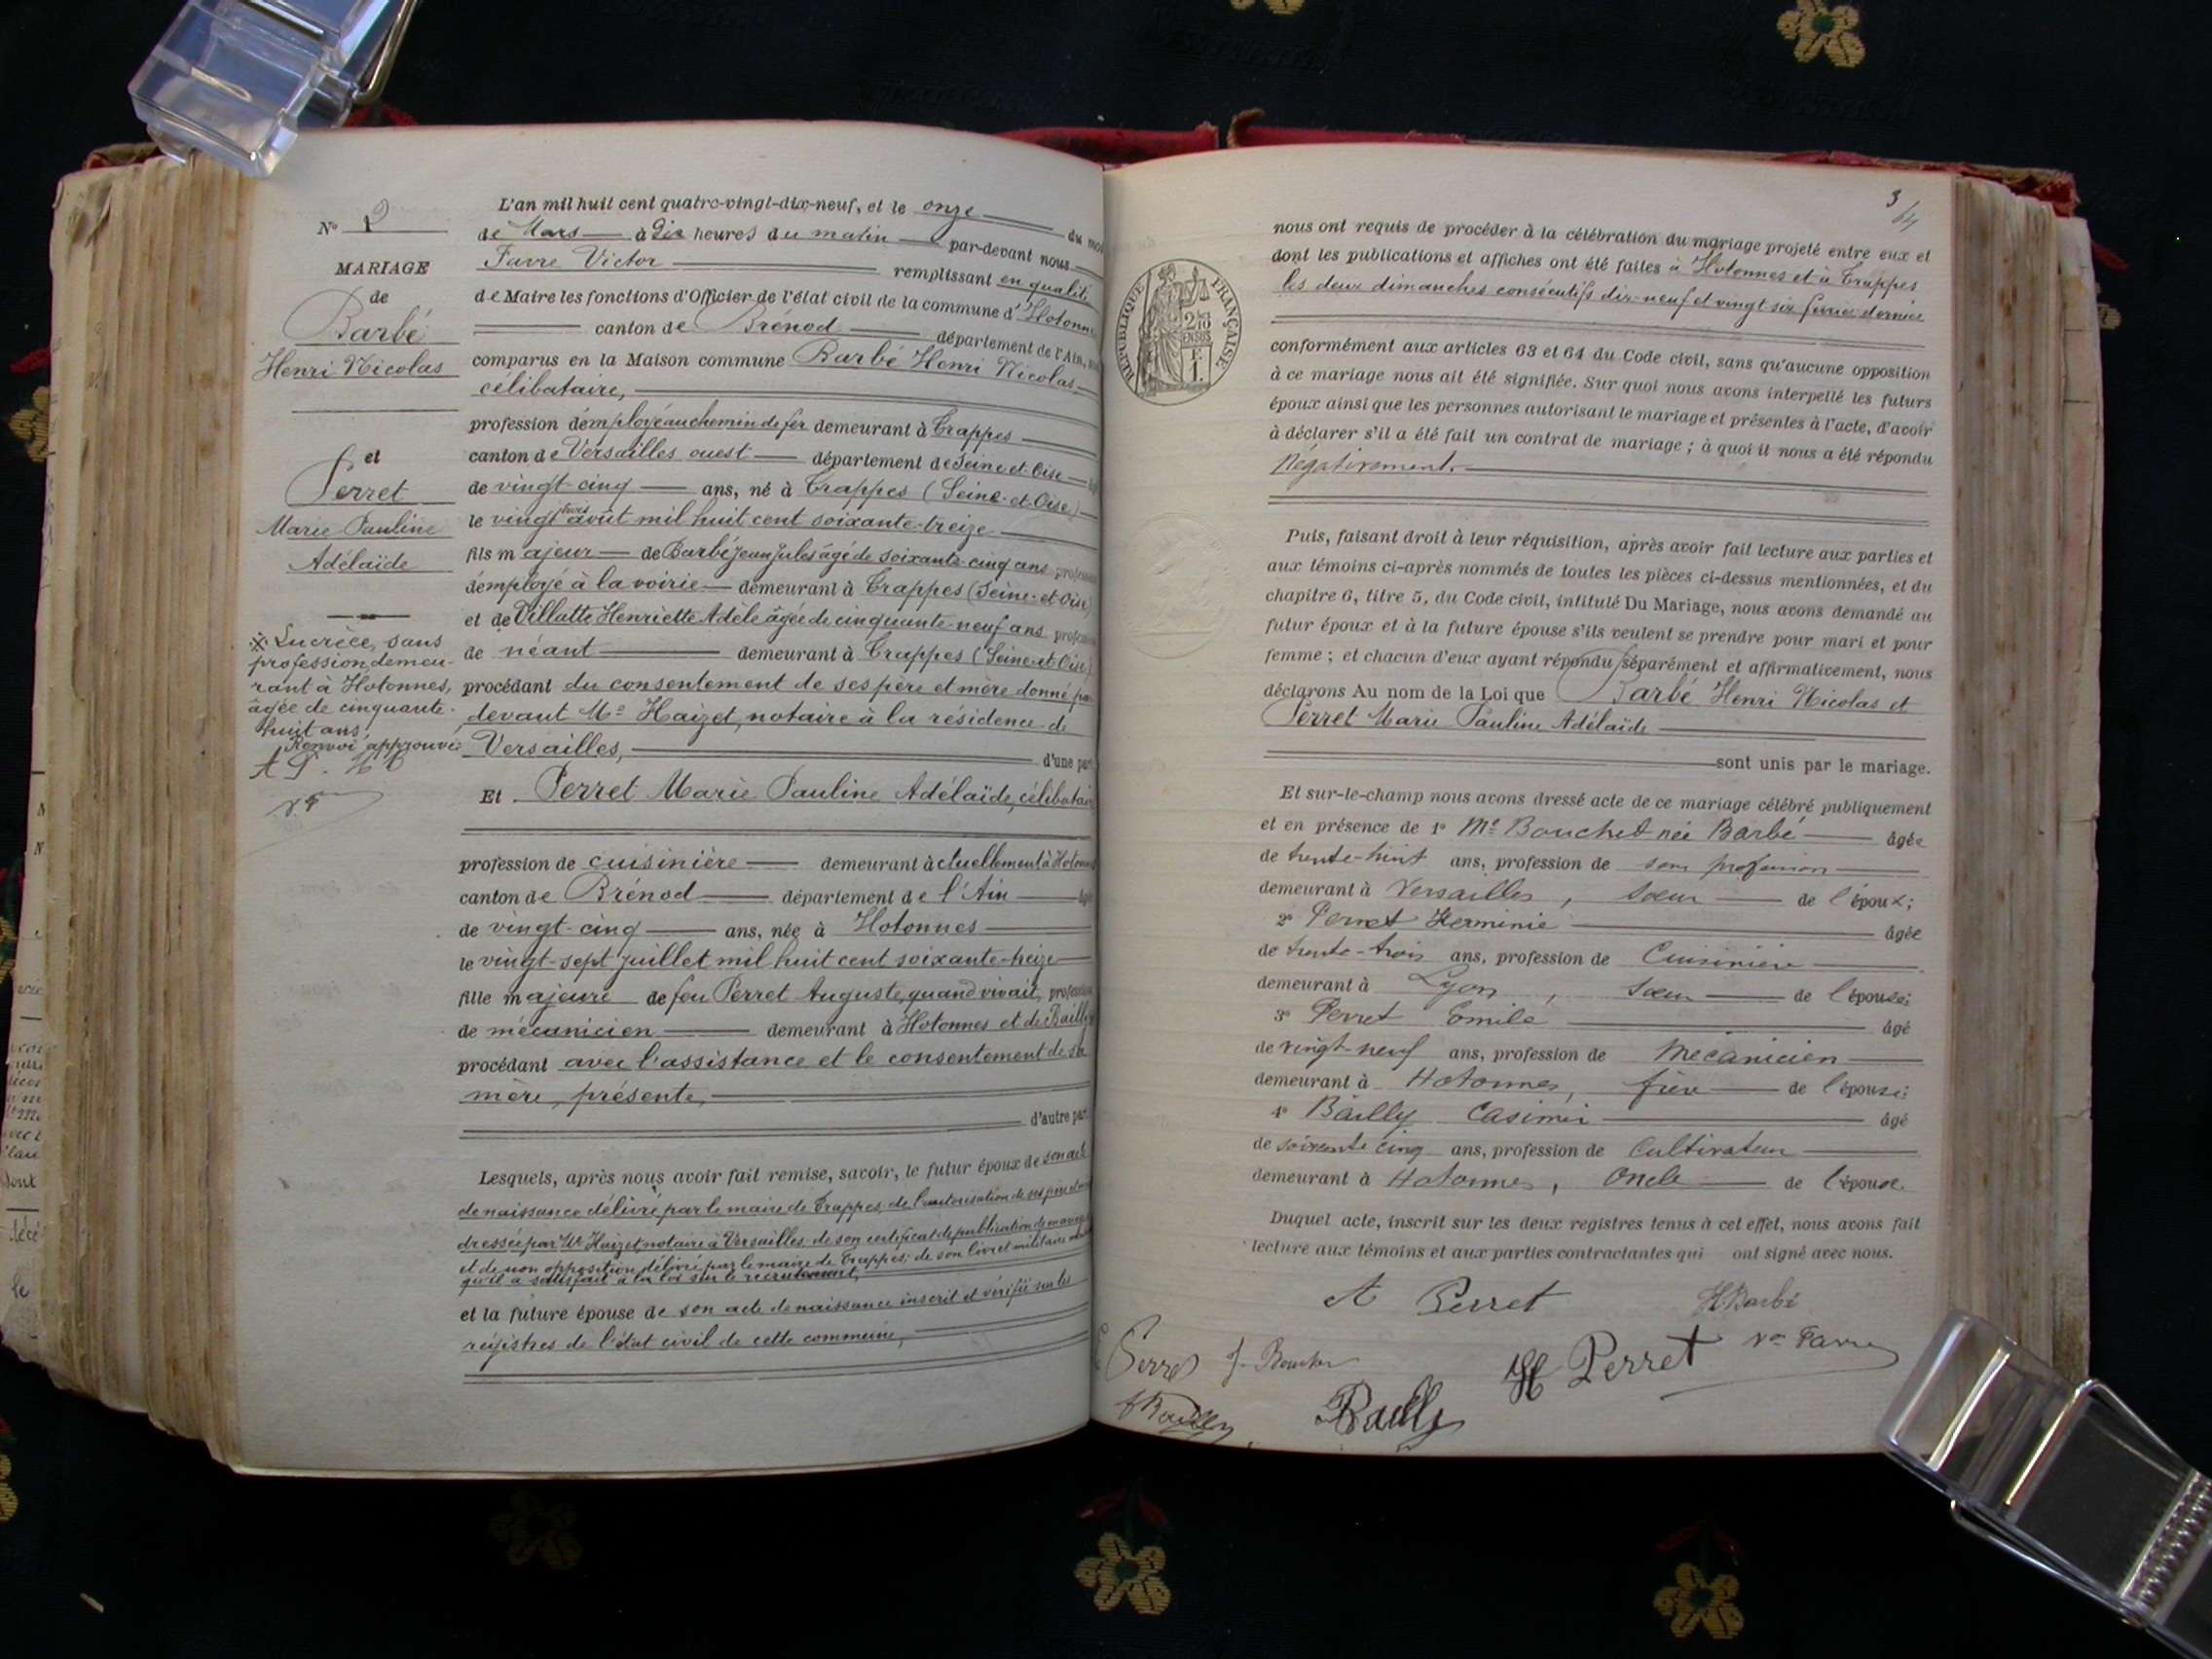 N° 2
MARIAGE
de
Barbé
Henri Nicolas
et
Perret
Marie Pauline
Adélaïde
※ Lucrèce, sans
profession, demeu-
rant à Hotonnes,
âgée de cinquante-
huit ans.
Renvoi approuvé:
A P. HB
V. F
L'an mil huit cent quatre-vingt-dix-neuf, et le onze du mois
de Mars à Dix heures du matin par-devant nous
Favre Victor remplissant en qualité
de Maire les fonctions d'Officier de l'état civil de la commune d'Hotonnes
canton de Brénod département de l'Ain,
comparus en la Maison commune Barbé Henri Nicolas
célibataire,
profession d'employé au chemin de fer demeurant à Trappes
canton de Versailles ouest département de Seine-et-Oise
de vingt-cinq ans, né à Trappes (Seine-et-Oise)
le vingt août mil huit cent soixante-treize
fils majeur de Barbé Jean Jules âgé de soixante-cinq ans profession
d'employé à la voirie demeurant à Trappes (Seine-et-Oise)
et de Villatte Henriette Adèle âgée de cinquante-neuf ans profession
de néant demeurant à Trappes (Seine-et-Oise)
procédant du consentement de ses père et mère donné par
devant Me Haizet, notaire à la résidence de
Versailles, d'une part
Et Perret Marie Pauline Adélaïde, célibataire
profession de cuisinière demeurant actuellement à Hotonnes
canton de Brénod département de l'Ain âgée
de vingt-cinq ans, née à Hotonnes
le vingt-sept juillet mil huit cent soixante-treize
fille majeure de feu Perret Auguste, quand vivait, profession
de mécanicien demeurant à Hotonnes et de Bailly
procédant avec l'assistance et le consentement de sa
mère, présente,
d'autre part.
Lesquels, après nous avoir fait remise, savoir, le futur époux de son acte
de naissance délivré par le maire de Trappes, de l'autorisation de ses père et mère
dressée par Me Haizet notaire à Versailles, de son certificat de publication de mariage
et de non opposition délivré par le maire de Trappes; de son livret militaire
qu'il a satisfait à la loi sur le recrutement,
et la future épouse de son acte de naissance inscrit et vérifié sur les
registres de l'état civil de cette commune,
3
RÉPUBLIQUE FRANÇAISE
nous ont requis de procéder à la célébration du mariage projeté entre eux et
dont les publications et affiches ont été faites à Hotonnes et à Trappes
les deux dimanches consécutifs dix-neuf et vingt six février dernier
conformément aux articles 63 et 64 du Code civil, sans qu'aucune opposition
à ce mariage nous ait été signifiée. Sur quoi nous avons interpellé les futurs
époux ainsi que les personnes autorisant le mariage et présentes à l'acte, d'avoir
à déclarer s'il a été fait un contrat de mariage; à quoi il nous a été répondu
Négativement.
Puis, faisant droit à leur réquisition, après avoir fait lecture aux parties et
aux témoins ci-après nommés de toutes les pièces ci-dessus mentionnées, et du
chapitre 6, titre 5, du Code civil, intitulé Du Mariage, nous avons demandé au
futur époux et à la future épouse s'ils veulent se prendre pour mari et pour
femme; et chacun d'eux ayant répondu séparément et affirmativement, nous
déclarons Au nom de la Loi que Barbé Henri Nicolas et
Perret Marie Pauline Adélaïde
sont unis par le mariage.
Et sur-le-champ nous avons dressé acte de ce mariage célébré publiquement
et en présence de 1° Me Bouchet née Barbé âgée
de trente-huit ans, profession de sans profession
demeurant à Versailles, soeur de l'époux;
2° Perret Herminie âgée
de trente-trois ans, profession de Cuisinière
demeurant à Lyon, soeur de l'épouse;
3° Perret Emile âgé
de vingt-neuf ans, profession de Mécanicien
demeurant à Hotonnes, frère de l'épouse;
4° Bailly Casimir âgé
de soixante cinq ans, profession de Cultivateur
demeurant à Hotonnes, Oncle de l'épouse.
Duquel acte, inscrit sur les deux registres tenus à cet effet, nous avons fait
lecture aux témoins et aux parties contractantes qui ont signé avec nous.
A Perret H Barbé
Perret J. Bouchet H Perret Vor Favre
Bailly Bailly